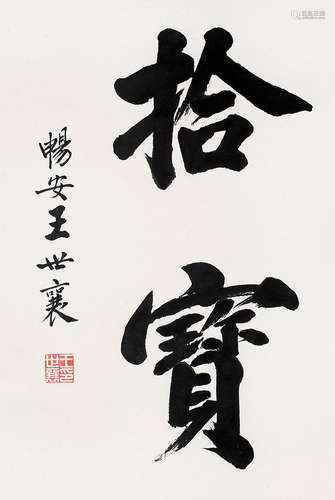 拾寶
暢安王世襄
王世襄印